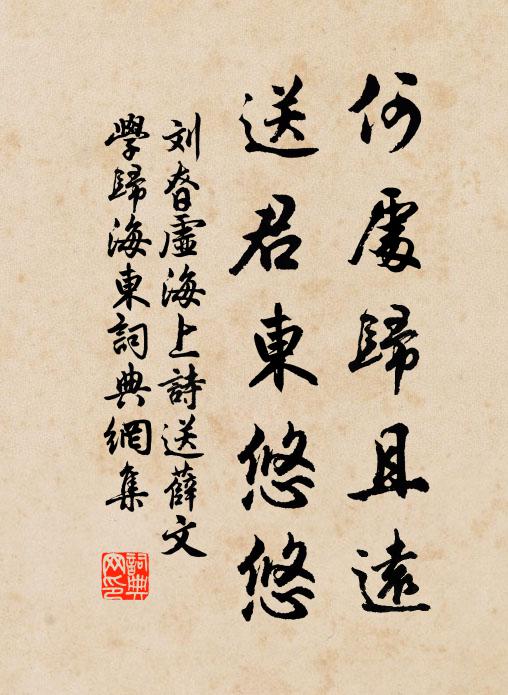 何處歸且遠
送君東悠悠
刘眘虛海上詩送薛文
學歸海東詞典網集
詞典
网印